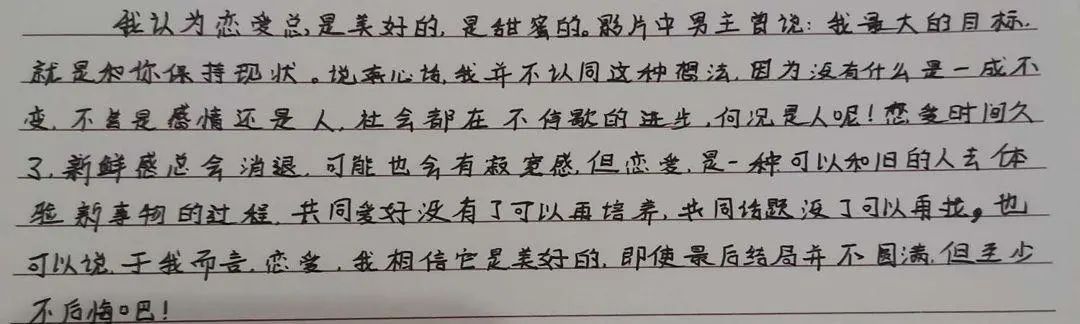 我认为恋爱总是美好的,是甜蜜的。影片中男主曾说:我最大的目标
就是和你保持现状。说实心话,我并不认同这种想法,因为没有什么是一成不
变,不管是感情还是人,社会都在不停歇的进步,何况是人呢!恋爱时间久
了,新鲜感总会消退,可能也会有寂寞感,但恋爱,是一种可以和旧的人去体
验新事物的过程,共同爱好没有了可以再培养,共同话题没了可以再找,也
可以说,于我而言,恋爱,我相信它是美好的,即使最后结局并不圆满,但至少
不后悔吧!